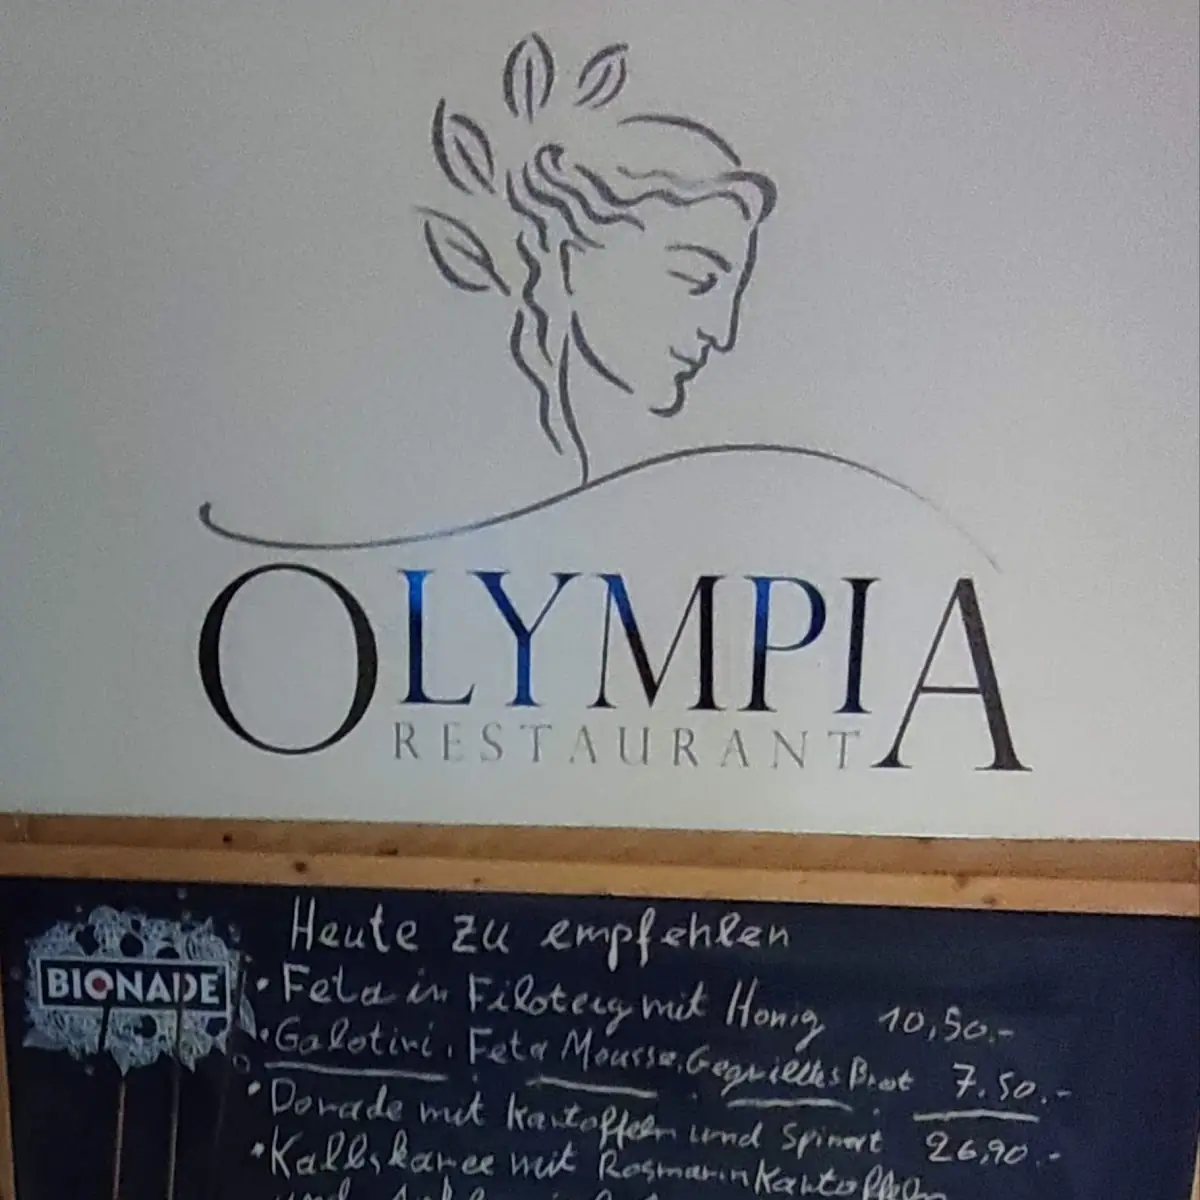 OLYMPIA
RESTAURANT
BIONADE
Heute zu empfehlen
• Feta in Filoteig mit Honig 10,50.-
• Galotiri, Feta Mousse, Gegrilltes Brot 7.50.-
• Dorade mit Kartoffeln und Spinat 26,90.-
• Kalbskaree mit Rosmarin Kartoffeln
und